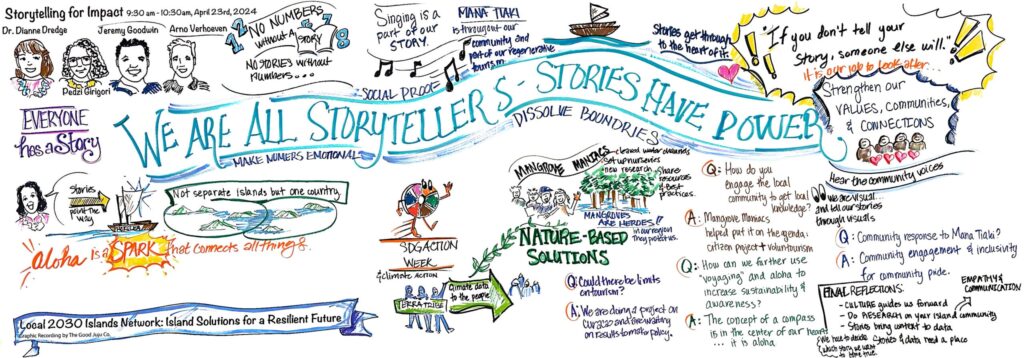 Storytelling for Impact 9:30 am - 10:30am, April 23rd, 2024
Dr. Dianne Dredge
Jeremy Goodwin
Arno Verhoeven
Pedzi Girigori
EVERYONE
has a Story
NO NUMBERS
without A STORY
NO STORIES without
numbers...
12
78
Singing is a
part of our
STORY.
MANA TIAKI
is throughout our
community and
part of our regenerative
tourism
Stories get through
to the heart of it.
"If you don't tell your
story, someone else will."
it is our job to look after...
Strengthen our
VALUES, COMMUNITIES,
& CONNECTIONS
SOCIAL PROOF
WE ARE ALL STORYTELLERS - STORIES HAVE POWER
MAKE NUMERS EMOTIONAL
DISSOLVE BOUNDRIES
Stories
point the
way
Not separate islands but one country
aloha is a SPARK that connects all things.
SDG ACTION
WEEK
& climate ACTION
TERRATRIBE
Climate data
to the people
MANGROVE MANIACS
Set up nurseries
new research
Share
resources
& Best
practices.
MANGROVES
ARE HEROES!!
in our region
They protect us.
NATURE-BASED
SOLUTIONS
Q: Could there be limits
on tourism?
A: We are doing a project on
Curacao and are waiting
on results to motor policy.
Q: How do you
engage the local
community to get local
knowledge?
A: Mangrove Maniacs
helped put it on the agenda:
citizen project + voluntourism
Q: How can we further use
"voyaging" and aloha to
increase sustainability &
awareness?
A: The concept of a compass
is in the center of our heart
... it is aloha
Hear the community voices
We are visual...
and tell our stories
through visuals
Q: Community response to Mana Tiaki?
A: Community engagement & inclusivity
for community pride.
EMPATHY &
COMMUNICATION
FINAL REFLECTIONS:
- CULTURE guides us forward
- Do RESEARCH on your island community
- Stories bring context to data
Stories & data need a place
We have to decide
which story we want
to be true
Local 2030 Islands Network: Island Solutions for a Resilient Future
Graphic Recording by The Good Juju Co.